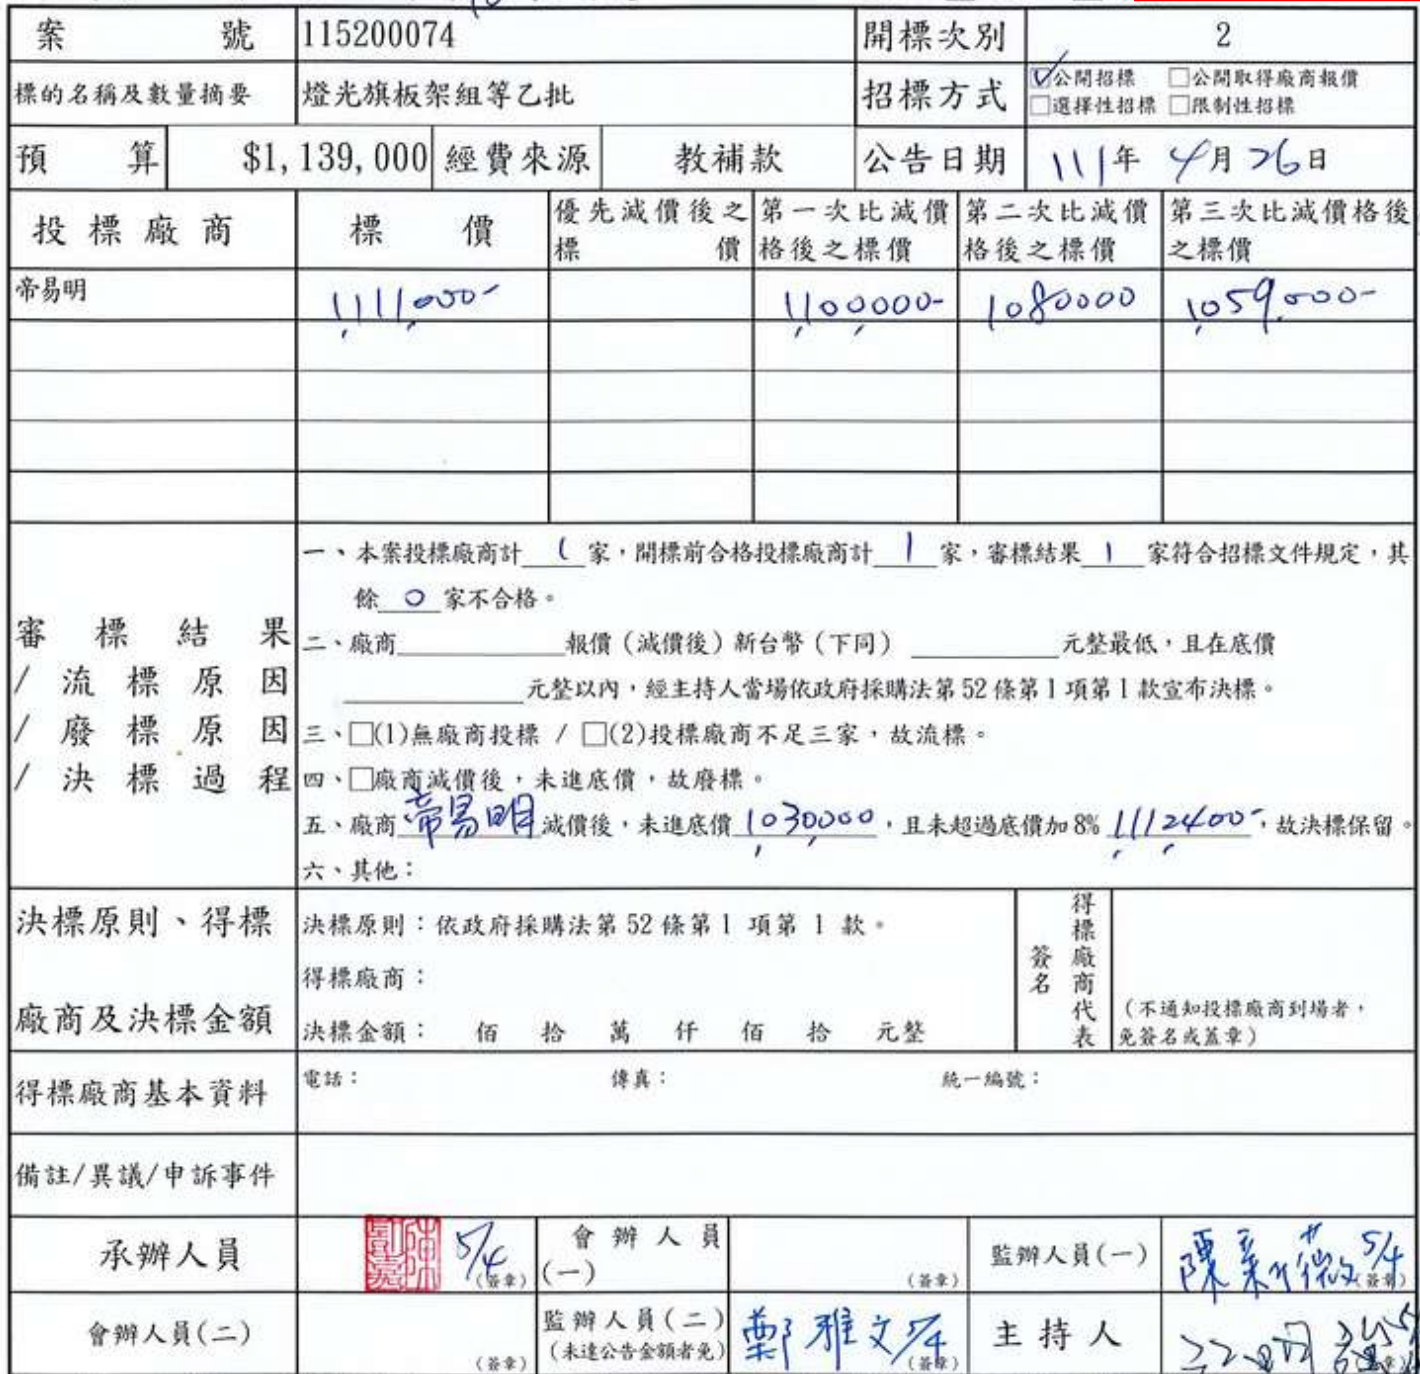 案 號 115200074 開標次別 2
標的名稱及數量摘要 燈光旗板架組等乙批 招標方式 ☑公開招標 □公開取得廠商報價
□選擇性招標 □限制性招標
預 算 $1,139,000 經費來源 教補款 公告日期 111年 4月26日
投標廠商 標 價 優先減價後之標 價 第一次比減價格後之標價 第二次比減價格後之標價 第三次比減價格後之標價
帝易明 1,111,000- 1,100,000- 1080000 1,059,000-
審標結果
/流標原因
/廢標原因
/決標過程
一、本案投標廠商計 1 家,開標前合格投標廠商計 1 家,審標結果 1 家符合招標文件規定,其
餘 0 家不合格。
二、廠商 報價(減價後)新台幣(下同) 元整最低,且在底價
元整以內,經主持人當場依政府採購法第52條第1項第1款宣布決標。
三、□(1)無廠商投標 / □(2)投標廠商不足三家,故流標。
四、□廠商減價後,未進底價,故廢標。
五、廠商 帝易明 減價後,未進底價 1,030,000,且未超過底價加8% 1,112,400-,故決標保留。
六、其他:
決標原則、得標
廠商及決標金額
決標原則:依政府採購法第52條第1項第1款。
得標廠商:
決標金額: 佰 拾 萬 仟 佰 拾 元整
得標廠商代表
簽名
(不通知投標廠商到場者,
免簽名或蓋章)
得標廠商基本資料 電話: 傳真: 統一編號:
備註/異議/申訴事件
承辦人員 5/4 (簽章) 會辦人員(一) (簽章) 監辦人員(一) 陳新薇 5/4 (簽章)
會辦人員(二) (簽章) 監辦人員(二)(未達公告金額者免) 鄭雅文 5/4 (簽章) 主持人